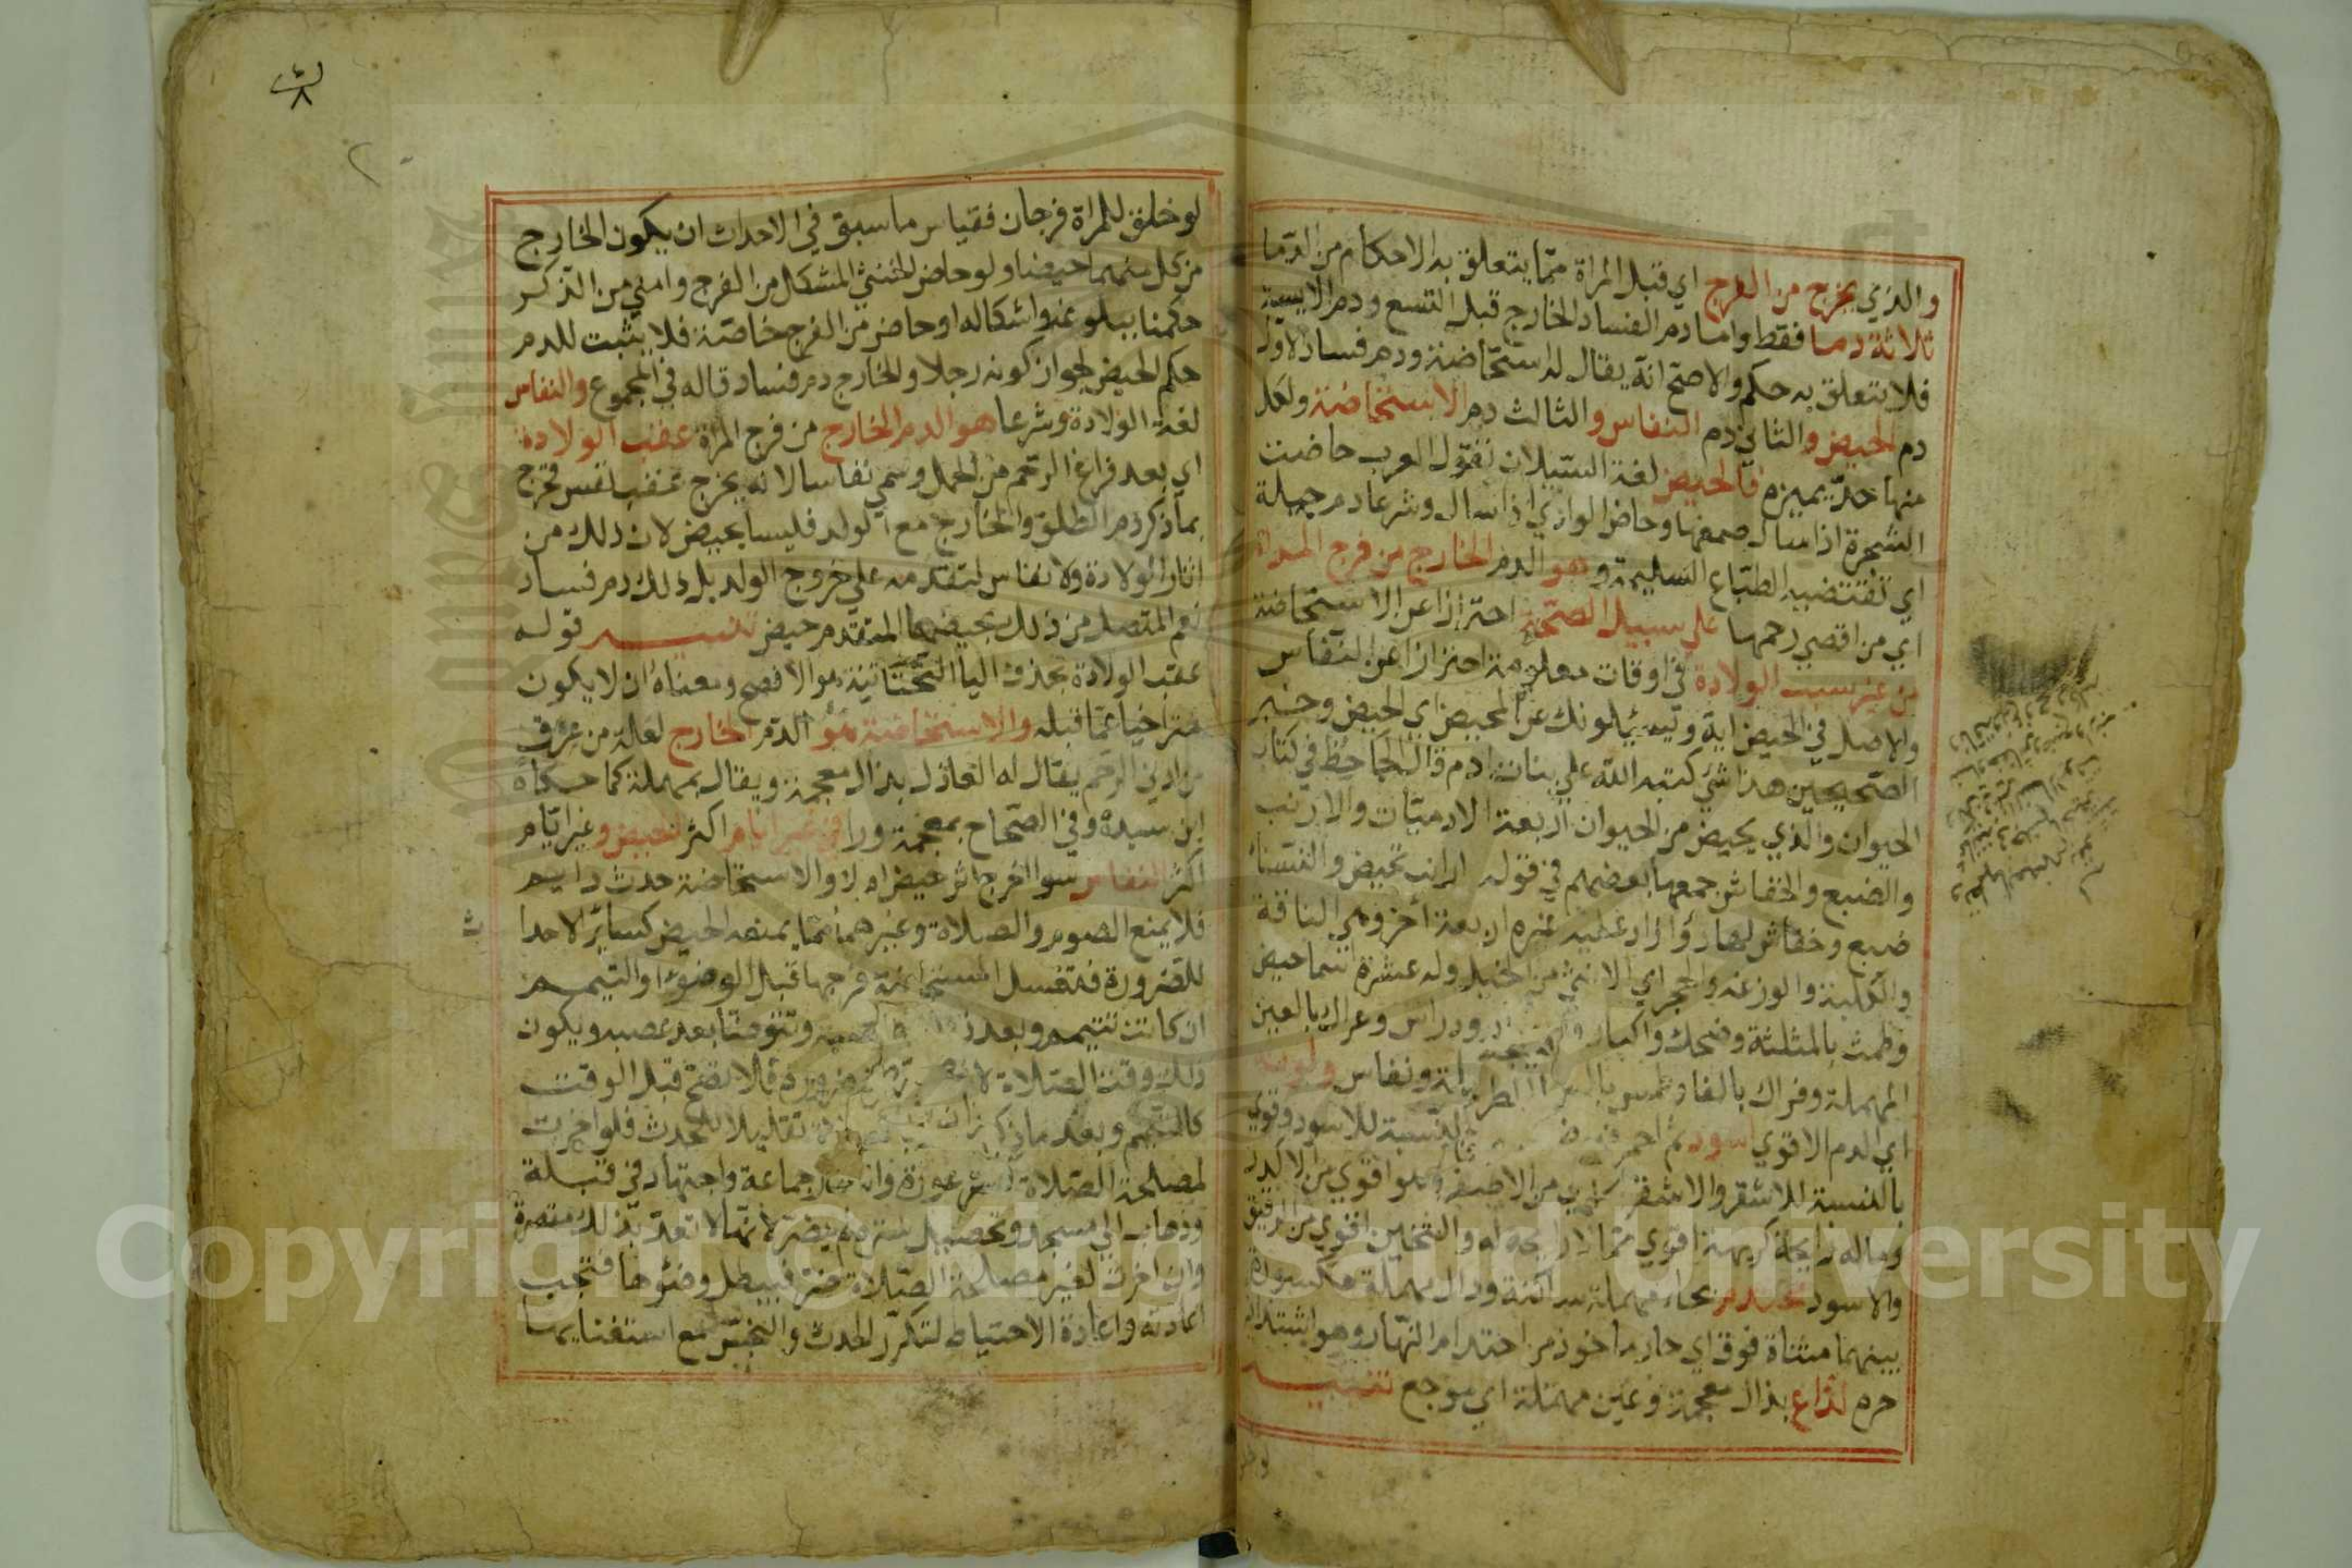 والذي يخرج من الفرج اي قبل المراة ممّا يتعلق به الاحكام من الدما
ثلاثة دما فقط واما دم الفساد الخارج قبل التسع ودم الايسة
فلا يتعلق به حكم والاصح انه يقال له استحاضة ودم فساد الاول
دم الحيض والثاني دم النفاس والثالث دم الاستحاضة ولكل
منها حدّ يميزه فالحيض لغة السيلان تقول العرب حاضت
الشجرة اذا سال صمغها وحاض الوادي اذا سال وشرعا دم جبلة
اي تقتضيه الطباع السليمة وهو الدم الخارج من فرج المراة
اي من اقصي رحمها علي سبيل الصحّة احترازا عن الاستحاضة
من غير سبب الولادة في اوقات معلومة احترازا عن النفاس
والاصل في الحيض اية ويسئلونك عن المحيض اي الحيض وخبر
الصحيحين هذا شي كتبه الله علي بنات ادم قال الجاحظ في كتاب
الحيوان والذي يحيض من الحيوان اربعة الادميّات والارنب
والضبع والخفاش جمعها بعضهم في قوله ارانب تحيض والنساء
ضبع وخفاش لها دواء زاد عليه غيره اربعة اخر وهي الناقة
والكلبة والوزغة والحجر اي الانثي من الخيل وله عشرة اسما حيض
وطمث بالمثلثة وضحك واكبار ودراس وعراك بالعين
المهملة وفراك بالفا وطمس بالسين ونفاس ولونه
اي الدم الاقوي اسود ثم احمر بالنسبة للاسود وقوي
بالنسبة للاشقر والاشقر من الاصفر وهو اقوي من الاكدر
وماله رايحة كريهة اقوي ممّا لا رايحه له والثخين اقوي من الرقيق
والاسود محتدم بحاء مهملة ساكنة ودال مهملة مكسورة
بينهما مثناة فوق اي حار ماخوذ من احتدام النهار وهو اشتداد
حره لذاع بذال معجمة وعين مهملة اي موجع تنبيه
لو خلق للمراة فرجان فقياس ما سبق في الاحداث ان يكون الخارج
من كل منهما حيضا ولو حاض الخنثي المشكل من الفرج وامني من الذكر
حكمنا ببلوغه واشكاله او حاض من الفرج خاصّة فلا يثبت للدم
حكم الحيض لجواز كونه رجلا والخارج دم فساد قاله في المجموع والنفاس
لغة الولادة وشرعا هو الدم الخارج من فرج المراة عقب الولادة
اي بعد فراغ الرحم من الحمل وسمي نفاسا لانه يخرج عقب نفس فخرج
بما ذكر دم الطلق والخارج مع الولد فليسا بحيض لان ذلك من
اثار الولادة ولا نفاس لتقدمه علي خروج الولد بل ذلك دم فساد
نعم المتصل من ذلك بحيضها المتقدم حيض تنبيه قوله
عقب الولادة بحذف اليا التحتانية هو الافصح ومعناه ان لا يكون
متراخيا عمّا قبله والاستحاضة هو الدم الخارج لعلة من عرق
من ادني الرحم يقال له العاذل بذال معجمة ويقال بمهملة كما حكاه
ابن سيده وفي الصحاح بمعجمة ورا في غير ايام اكثر الحيض وغير ايام
اكثر النفاس سوا اخرج اثر حيض ام لا والاستحاضة حدث دايم
فلا يمنع الصوم والصلاة وغيرهما ممّا يمنعه الحيض كسائر الاحدا
ث
للضرورة فتغسل المستحاضة فرجها قبل الوضوء او التيمم
ان كانت تتيمم وبعد ذلك وتتوضا بعد عصبه ويكون
ذلك وقت الصلاة لانها طهارة ضرورة فلا تصح قبل الوقت
كالتيمم وبعد ما ذكر تقليلا للحدث فلو اخرت
لمصلحة الصلاة كستر عورة وانتظار جماعة واجتهاد في قبلة
وذهاب الي مسجد وتحصيل سترة لم يضر لانها لا تعدّ بذلك مقصرة
وان اخرت لغير مصلحة الصلاة ضر فيبطل وضوءها فتجب
اعادته واعادة الاحتياط لتكرر الحدث والنجس مع استغنايها
Copyright © King Saud University